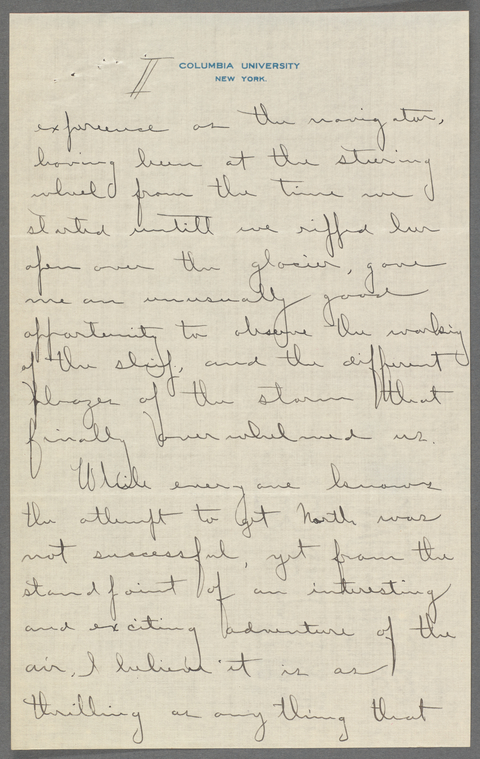 II
COLUMBIA UNIVERSITY
NEW YORK.
experience as the navigator,
having been at the steering
wheel from the time we
started untill we riffed her
open over the glacier, gave
me an unusually good
oppertunity to observe the working
of the ship, and the different
phazes of the storm that
finally overwhelmed us.
While everyone knows
the attempt to get North was
not successful, yet from the
standpoint of an interesting
and exciting adventure of the
air, I believe it is as
thrilling as anything that